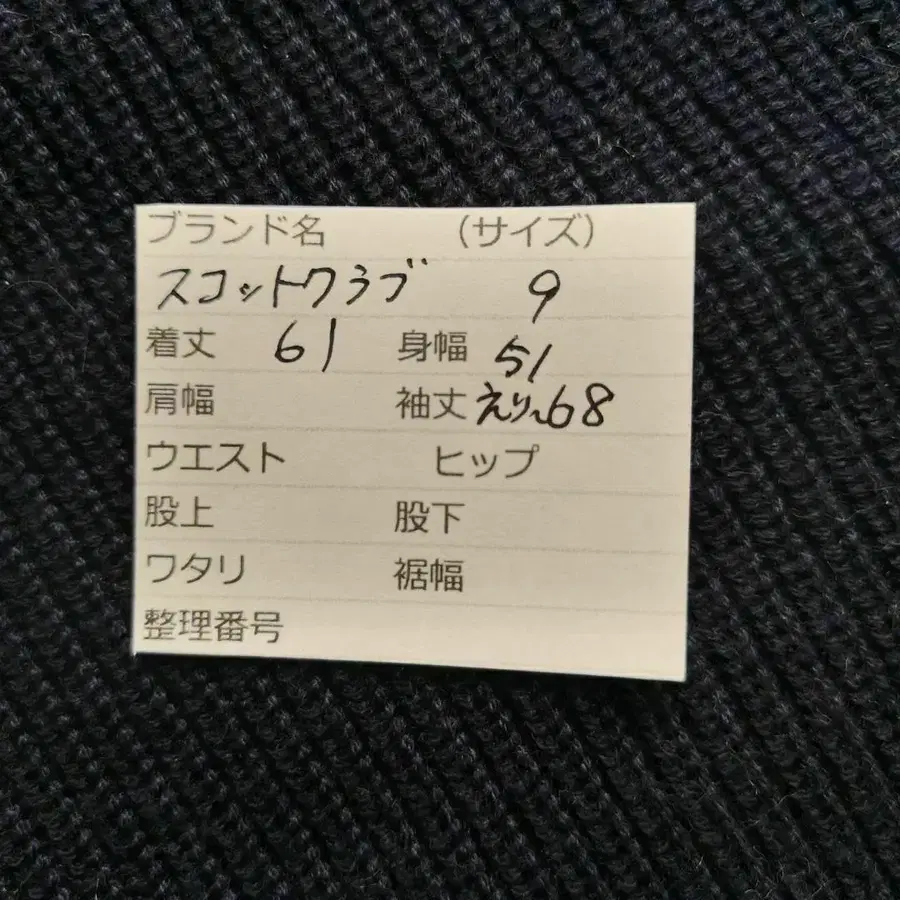 ブランド名 （サイズ）
スコットクラブ 9
着丈 61 身幅 51
肩幅 袖丈 えり~68
ウエスト ヒップ
股上 股下
ワタリ 裾幅
整理番号